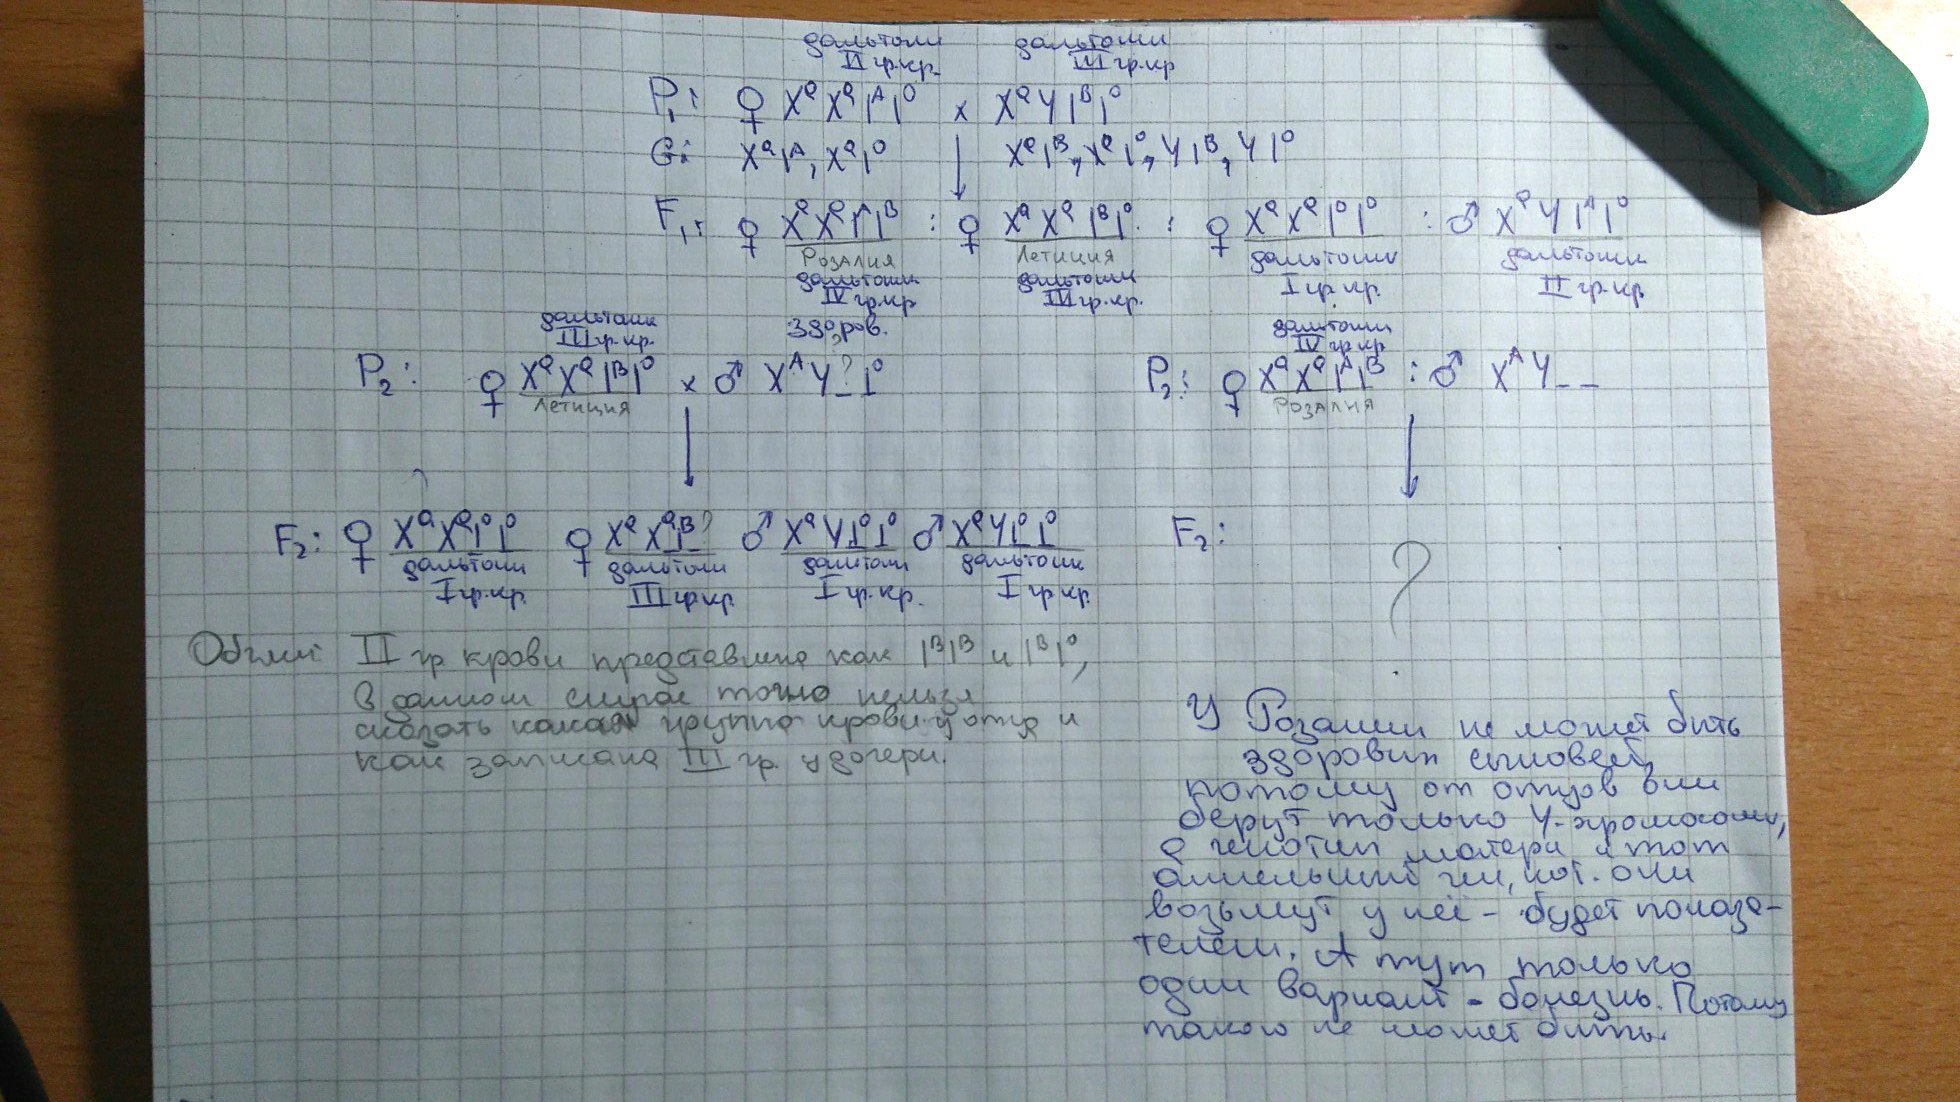 дальтоник дальтоник
II гр.кр. III гр.кр
P₁: ♀ XᵃXᵃIᴬI⁰ x XᵃYIᴮI⁰
G: XᵃIᴬ, XᵃI⁰ XᵃIᴮ, XᵃI⁰, YIᴮ, YI⁰
F₁: ♀ XᵃXᵃIᴬIᴮ : ♀ XᵃXᵃIᴮI⁰ : ♀ XᵃXᵃI⁰I⁰ : ♂ XᵃYIᴬI⁰
Розалия Летиция дальтоник дальтоник
дальтоник дальтоник I гр.кр. II гр.кр
IV гр.кр III гр.кр.
дальтоник здоров. дальтоник
III гр.кр. IV гр.кр
P₂: ♀ XᵃXᵃIᴮI⁰ x ♂ XᴬY?_I⁰ P₂: ♀ XᵃXᵃIᴬIᴮ : ♂ XᴬY_ _
Летиция Розалия
F₂: ♀ XᵃXᵃI⁰I⁰ ♀ XᵃXᵃIᴮ_? ♂ XᵃYI⁰I⁰ ♂ XᵃYI⁰I⁰ F₂: ?
дальтоник дальтоник дальтоник дальтоник
I гр.кр. III гр.кр. I гр.кр. I гр.кр.
II гр крови представлена как IᴮIᴮ и IᴮI⁰,
в данном случае точно нельзя
сказать какая группа крови у отца и
как записана III гр. у дочери.
У Розалии не может быть
здоровых сыновей,
потому от отцов они
берут только Y-хромосому,
а генотип матери и тот
аллельный ген, кот. они
возьмут у неё - будет показа-
телем. А тут только
один вариант - болезнь. Потому
такого не может быть.